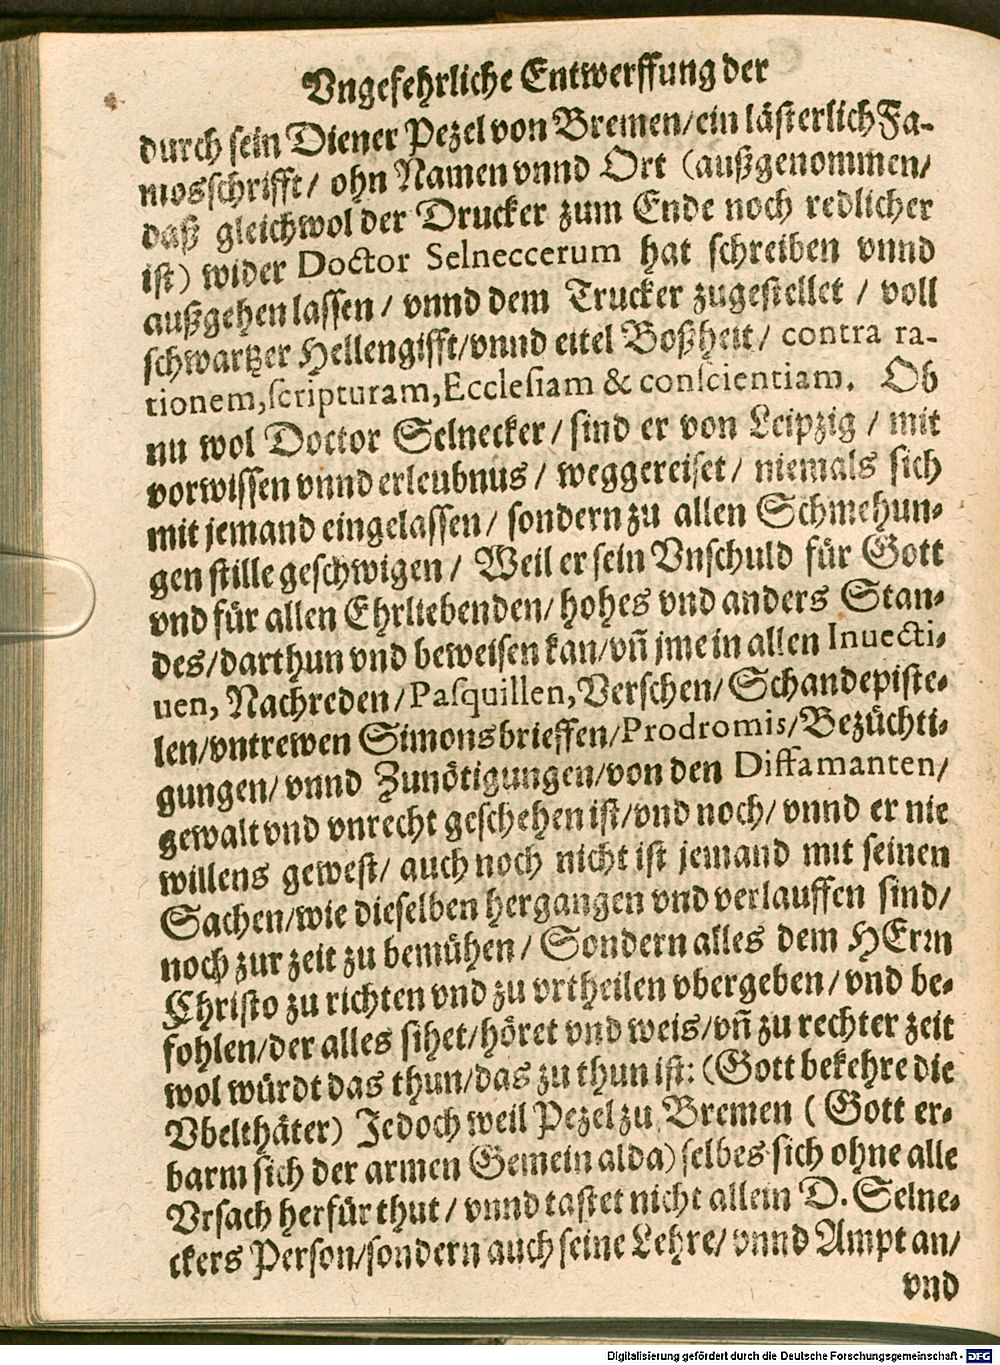 Vngefehrliche Entwerffung der
durch sein Diener Pezel von Bremen/ein lästerlich Fa-
mosschrifft/ ohn Namen vnnd Ort (außgenommen/
daß gleichwol der Drucker zum Ende noch redlicher
ist) wider Doctor Selneccerum hat schreiben vnnd
außgehen lassen / vnnd dem Trucker zugestellet / voll
schwartzer Hellengifft/vnnd eitel Boßheit/ contra ra-
tionem,scripturam,Ecclesiam & conscientiam. Ob
nu wol Doctor Selnecker/ sind er von Leipzig / mit
vorwissen vnnd erleubnus / weggereiset/ niemals sich
mit jemand eingelassen/ sondern zu allen Schmehun-
gen stille geschwigen / Weil er sein Vnschuld für Gott
vnd für allen Ehrliebenden/ hohes vnd anders Stan-
des/darthun vnd beweisen kan/vñ jme in allen Inuecti-
uen, Nachreden/Pasquillen,Verschen/ Schandepiste-
len/vntrewen Simonsbrieffen/Prodromis/Bezüchti-
gungen/ vnnd Zunötigungen/von den Diffamanten/
gewalt vnd vnrecht geschehen ist/vnd noch/ vnnd er nie
willens gewest/ auch noch nicht ist jemand mit seinen
Sachen/wie dieselben hergangen vnd verlauffen sind/
noch zur zeit zu bemühen/ Sondern alles dem HErrn
Christo zu richten vnd zu vrtheilen vbergeben/ vnd be-
fohlen/der alles sihet/höret vnd weis/vñ zu rechter zeit
wol würdt das thun/das zu thun ist: (Gott bekehre die
Vbelthäter) Jedoch weil Pezel zu Bremen ( Gott er-
barm sich der armen Gemein alda) selbes sich ohne alle
Vrsach herfür thut / vnnd tastet nicht allein D. Selne-
ckers Person/sondern auch seine Lehre/ vnnd Ampt an/
vnd
Digitalisierung gefördert durch die Deutsche Forschungsgemeinschaft - DFG